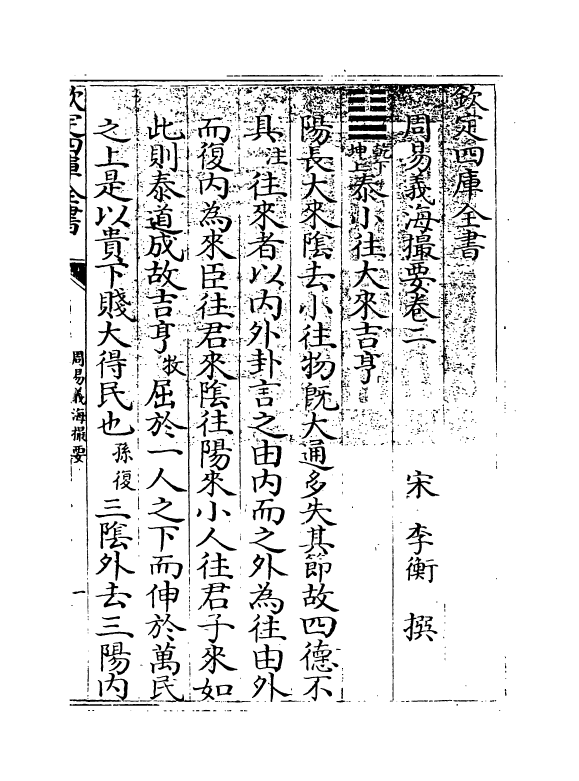 欽定四庫全書
周易義海撮要卷二
宋 李衡 撰
乾下坤上泰小往大來吉亨
陽長大來陰去小往物既大通多失其節故四德不
具注往來者以内外卦言之由内而之外為往由外
而復内為來臣往君來陰往陽來小人往君子來如
此則泰道成故吉亨牧屈於一人之下而伸於萬民
之上是以貴下賤大得民也孫復三陰外去三陽内
欽定四庫全書
周易義海撮要
一